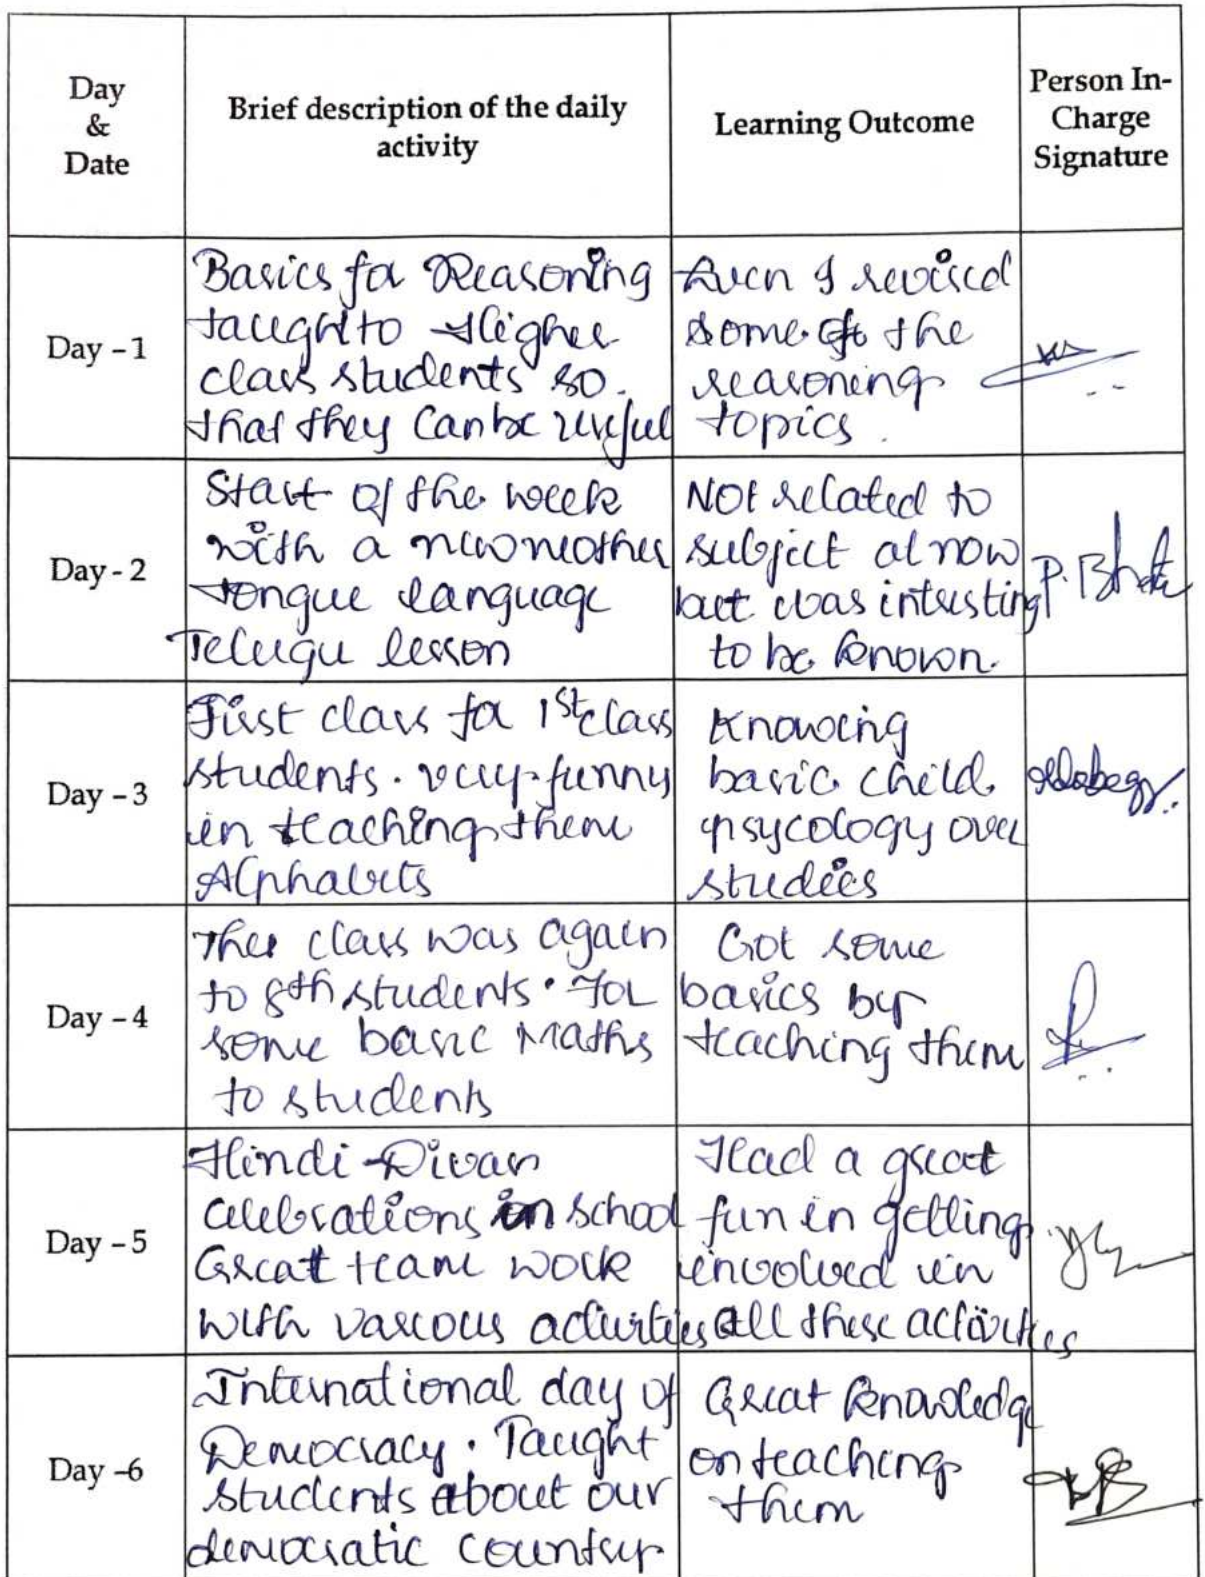 Day
&
Date
Brief description of the daily
activity
Learning Outcome
Person In-
Charge
Signature
Day - 1
Basics for Reasoning
taught to Higher
class students so
that they can be useful
Even I revised
some of the
reasoning
topics.
Day - 2
Start of the week
with a new mother
tongue language
Telugu lesson
Not related to
subject at now
but was intresting
to be known.
Day - 3
First class for 1st class
students. very funny
in teaching them
Alphabets
Knowing
basic child
psycology over
studies
Day - 4
The class was again
to 8th students. For
some basic Maths
to students
Got some
basics by
teaching them
Day - 5
Hindi Divas
celebrations in school
Great team work
with various activities
Had a great
fun in getting
involved in
all these activities
Day -6
International day of
Democracy. Taught
students about our
democratic country
Great knowledge
on teaching
them